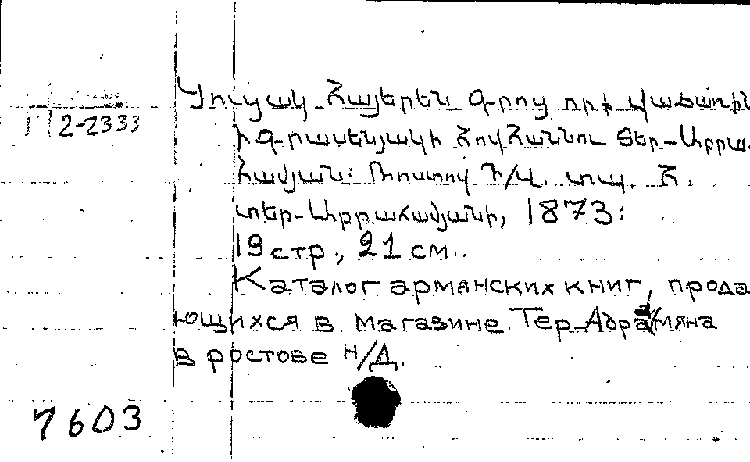 Ցուցակ Հայերէն գրոց որք վաճառին
II 2-2333
ի գրասենյակի Հովհաննու Տեր-Աբրա-
համյան: Ռոստով Դ/Վ. տպ. Հ.
տեր-Աբրահամյանի, 1873:
19 стр, 21 см.
Каталог армянских книг, прода
ющихся в магазине Тер-Абрамяна
в ростове н/Д.
7603